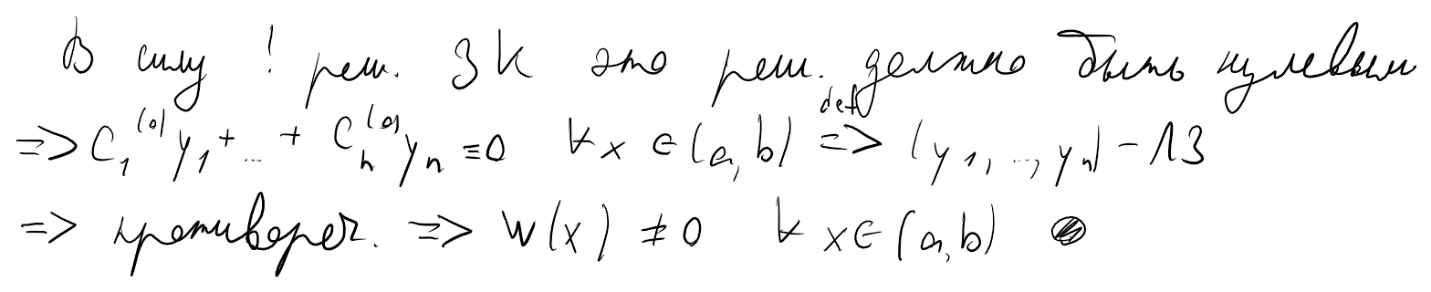 В силу ! реш. ЗК это реш. должно быть нулевым
=> C₁⁽⁰⁾y₁ + ... + Cₙ⁽⁰⁾yₙ ≡ 0 ∀x ∈ (a, b) =>ᵈᵉᶠ (y₁, ..., yₙ) - ЛЗ
=> противореч. => W(x) ≠ 0 ∀ x ∈ (a, b) ●